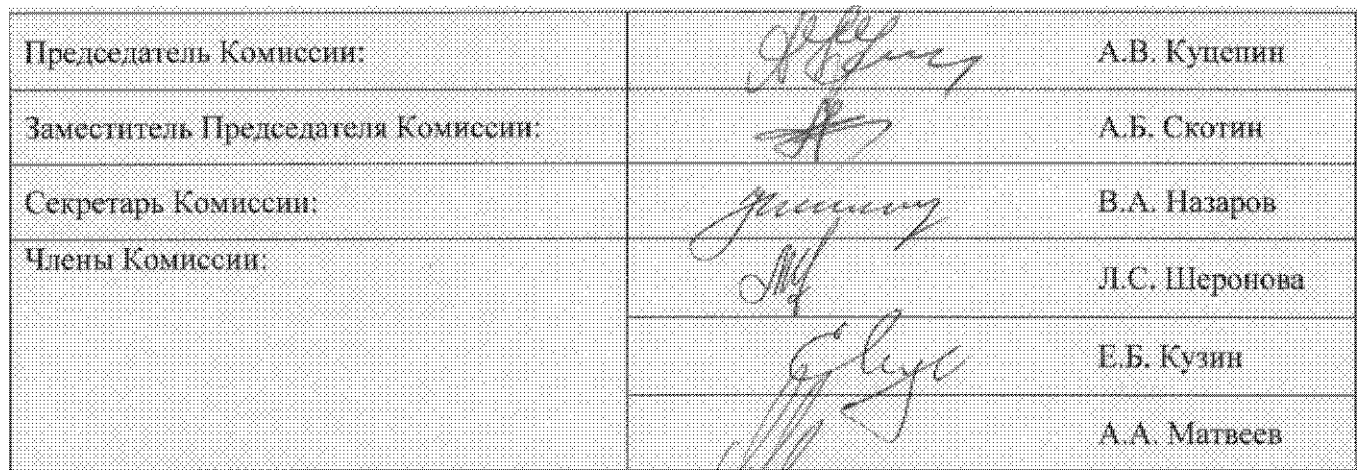 Председатель Комиссии: А.В. Куцепин
Заместитель Председателя Комиссии: А.Б. Скотин
Секретарь Комиссии: В.А. Назаров
Члены Комиссии: Л.С. Шеронова
Е.Б. Кузин
А.А. Матвеев